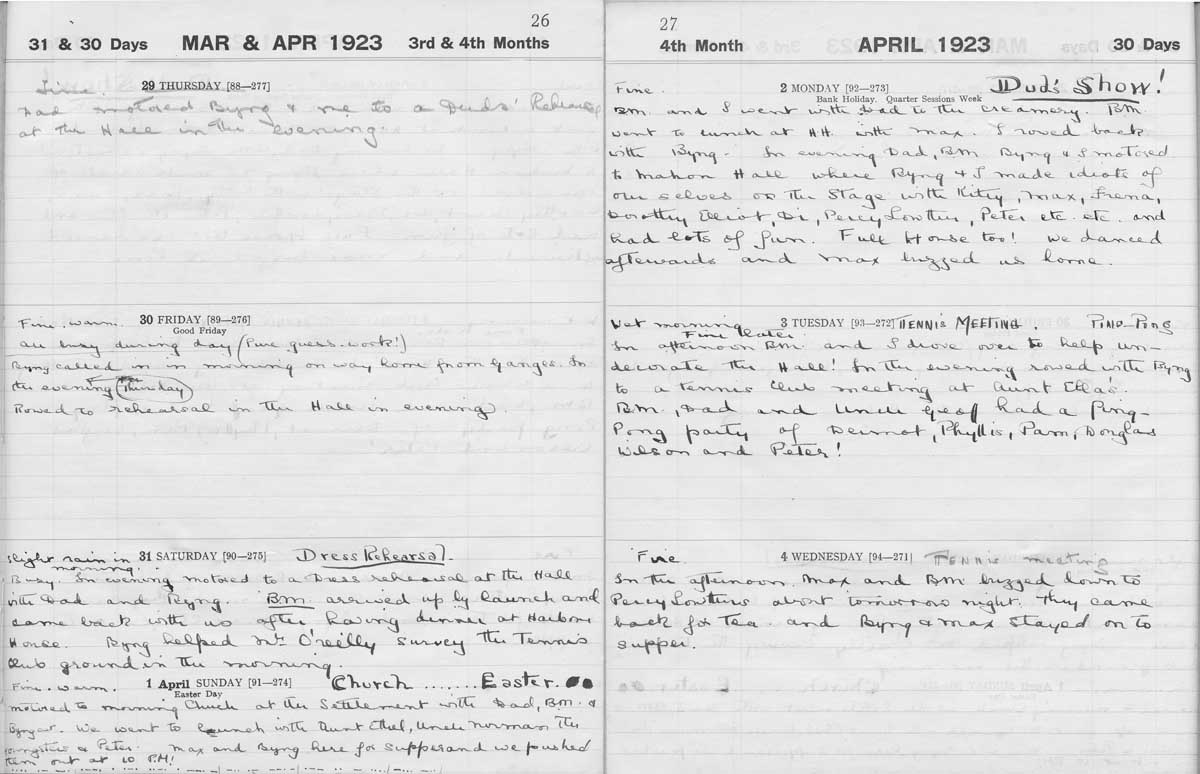 26
31 & 30 Days MAR & APR 1923 3rd & 4th Months
29 THURSDAY [88—277]
Fine.
Dad motored Byng & me to a Duds' Rehearsal
at the Hall in the evening.
30 FRIDAY [89—276]
Good Friday
Fine. warm.
all away during day (Pure guess-work!)
Byng called in in morning on way home from Ganges. In
the evening Thursday
Rowed to rehearsal in the Hall in evening.
31 SATURDAY [90—275] Dress Rehearsal
slight rain in
morning.
Busy. In evening motored to a Dress rehearsal at the Hall
with Dad and Byng. B.M. arrived up by launch and
came back with us after having dinner at Harbour
House. Byng helped Mr O'reilly survey the Tennis
Club ground in the morning.
1 April SUNDAY [91—274] Church ....... Easter.
Easter Day
Fine. warm.
motored to morning Church at the Settlement with Dad, B.M. &
We went to lunch with Aunt Ethel, Uncle Norman, the
youngsters & Peter. Max and Byng here for supper and we pushed
them out at 10 P.M!
27
4th Month APRIL 1923 30 Days
2 MONDAY [92—273] Dud's Show!
Bank Holiday. Quarter Sessions Week
Fine.
B.M. and I went with Dad to the creamery. B.M.
went to lunch at H.H. with Max. I rowed back
with Byng. In evening Dad, B.M. Byng & I motored
to Mahon Hall where Byng & I made idiots of
our selves on the Stage with Kitty, Max, Irena,
Dorothy Elliot, Di, Percy Lowther, Peter etc. etc. and
had lots of fun. Full House too! We danced
afterwards and Max buzzed us home.
3 TUESDAY [93—272] TENNIS MEETING. PING-PONG
Wet morning
Fine later
In afternoon B.M. and I drove over to help un-
decorate the Hall! In the evening rowed with Byng
to a tennis club meeting at Aunt Ella's.
B.M., Dad and Uncle Geoff had a Ping-
Pong party of Dermot, Phyllis, Pam, Douglas
Wilson and Peter!
4 WEDNESDAY [94—271] TENNIS meeting
Fine.
In the afternoon Max and B.M. buzzed down to
Percy Lowthers about tomorrow night. They came
back for Tea and Byng & Max stayed on to
supper.